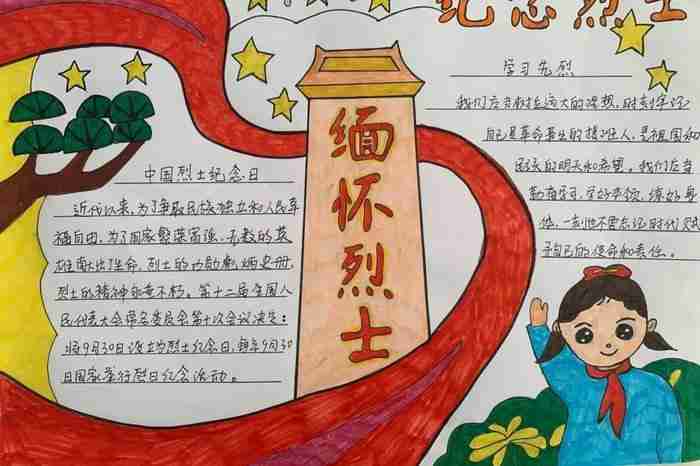 纪念烈士
缅怀烈士
中国烈士纪念日
近代以来,为了争取民族独立和人民幸
福自由,为了国家繁荣富强,无数的英
雄献出了生命,烈士的功勋彪炳史册,
烈士的精神永垂不朽。第十二届全国人
民代表大会常务委员会第十次会议决定:
将9月30日设立为烈士纪念日,每年9月30
日国家举行烈日纪念活动。
学习先烈
我们应当树立远大的理想,时刻牢记
自己是革命事业的接班人,是祖国和
民族的明天和希望。我们应当
勤奋学习,学好本领,练好身
体,一刻也不要忘记时代赋
予自己的使命和责任。